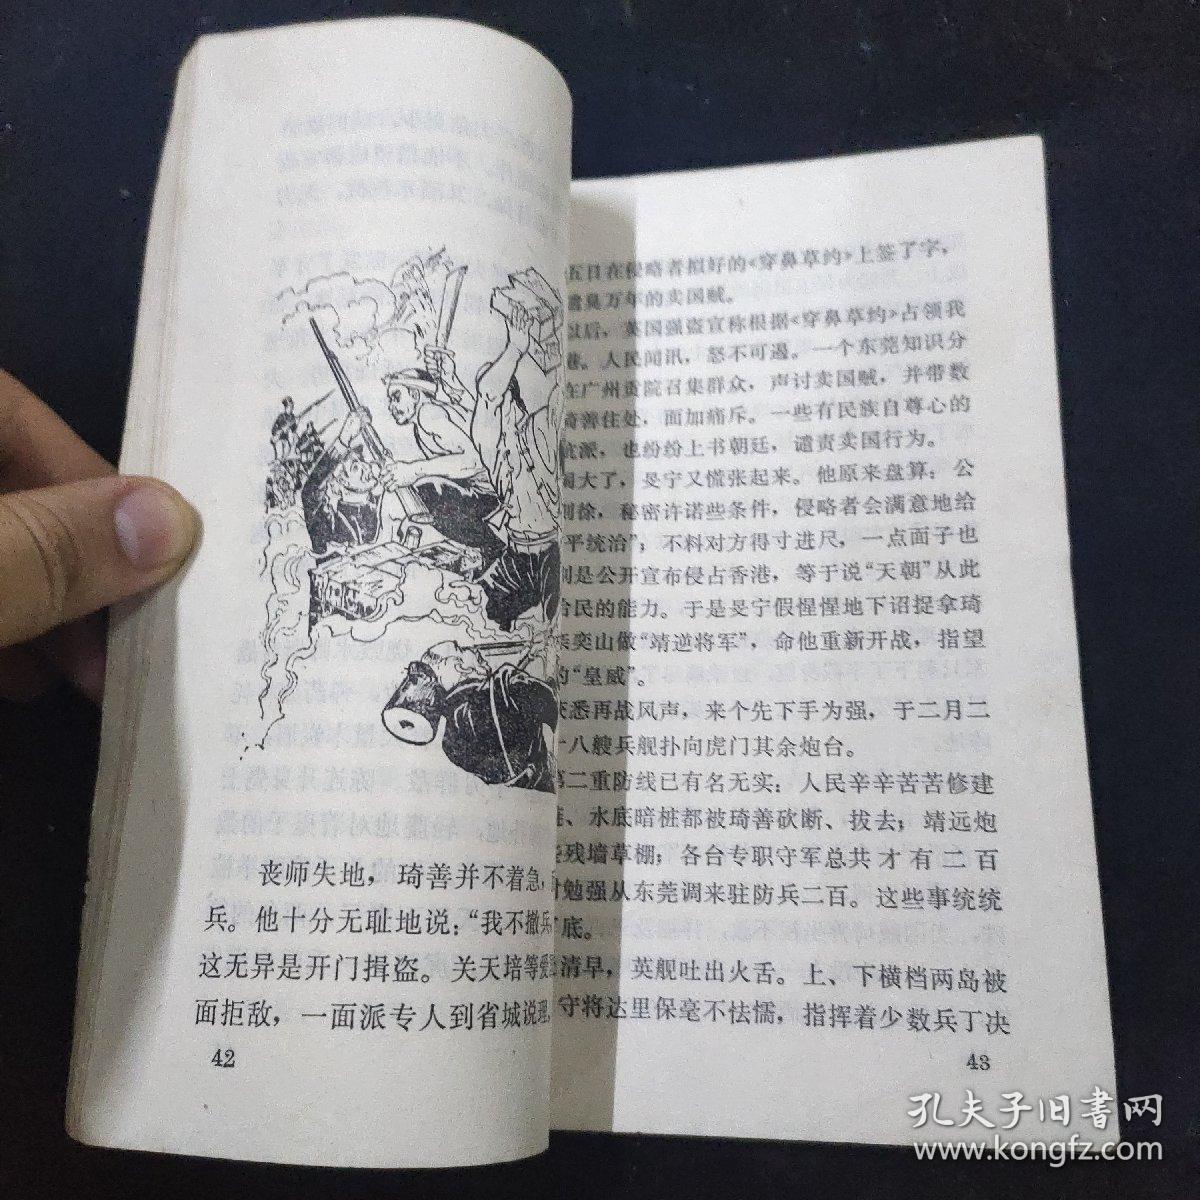 丧师失地，琦善并不着急，
兵。他十分无耻地说：“我不撤兵
这无异是开门揖盗。关天培等爱
面拒敌，一面派专人到省城说理，
42
五日在侵略者拟好的《穿鼻草约》上签了字，
遗臭万年的卖国贼。
以后，英国强盗宣称根据《穿鼻草约》占领我
港。人民闻讯，怒不可遏。一个东莞知识分
在广州贡院召集群众，声讨卖国贼，并带数
琦善住处，面加痛斥。一些有民族自尊心的
贪派，也纷纷上书朝廷，谴责卖国行为。
闹大了，旻宁又慌张起来。他原来盘算：公
则徐，秘密许诺些条件，侵略者会满意地给
平统治”；不料对方得寸进尺，一点面子也
别是公开宣布侵占香港，等于说“天朝”从此
治民的能力。于是旻宁假惺惺地下诏捉拿琦
奕山做“靖逆将军”，命他重新开战，指望
的“皇威”。
获悉再战风声，来个先下手为强，于二月二
十八艘兵舰扑向虎门其余炮台。
第二重防线已有名无实：人民辛辛苦苦修建
、水底暗桩都被琦善砍断、拔去；靖远炮
残墙草棚；各台专职守军总共才有二百
勉强从东莞调来驻防兵二百。这些事统统
底。
清早，英舰吐出火舌。上、下横档两岛被
守将达里保毫不怯懦，指挥着少数兵丁决
43
孔夫子旧书网
www.kongfz.com